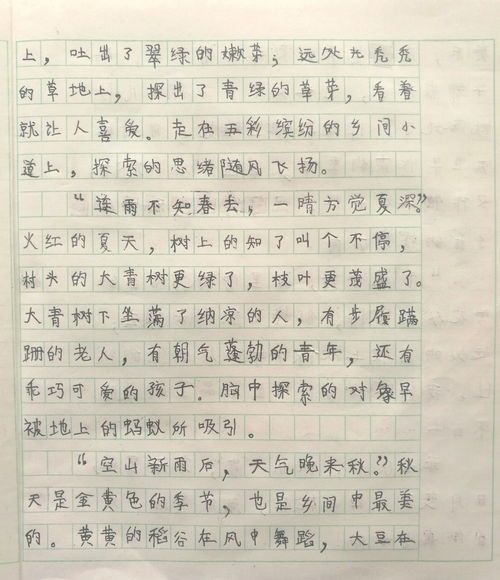 上，吐出了翠绿的嫩芽；远处光秃秃
的草地上，探出了青绿的草芽，看着
就让人喜爱。走在五彩缤纷的乡间小
道上，探索的思绪随风飞扬。
“连雨不知春去，一晴方觉夏深。”
火红的夏天，树上的知了叫个不停，
村头的大青树更绿了，枝叶更茂盛了。
大青树下坐满了纳凉的人，有步履蹒
跚的老人，有朝气蓬勃的青年，还有
乖巧可爱的孩子。脑中探索的对象早
被地上的蚂蚁所吸引。
“空山新雨后，天气晚来秋。”秋
天是金黄色的季节，也是乡间中最美
的。黄黄的稻谷在风中舞蹈，大豆在